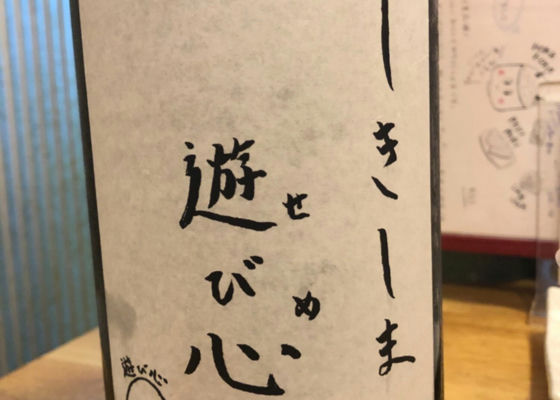 しきしま
せめ
遊び心
遊び心